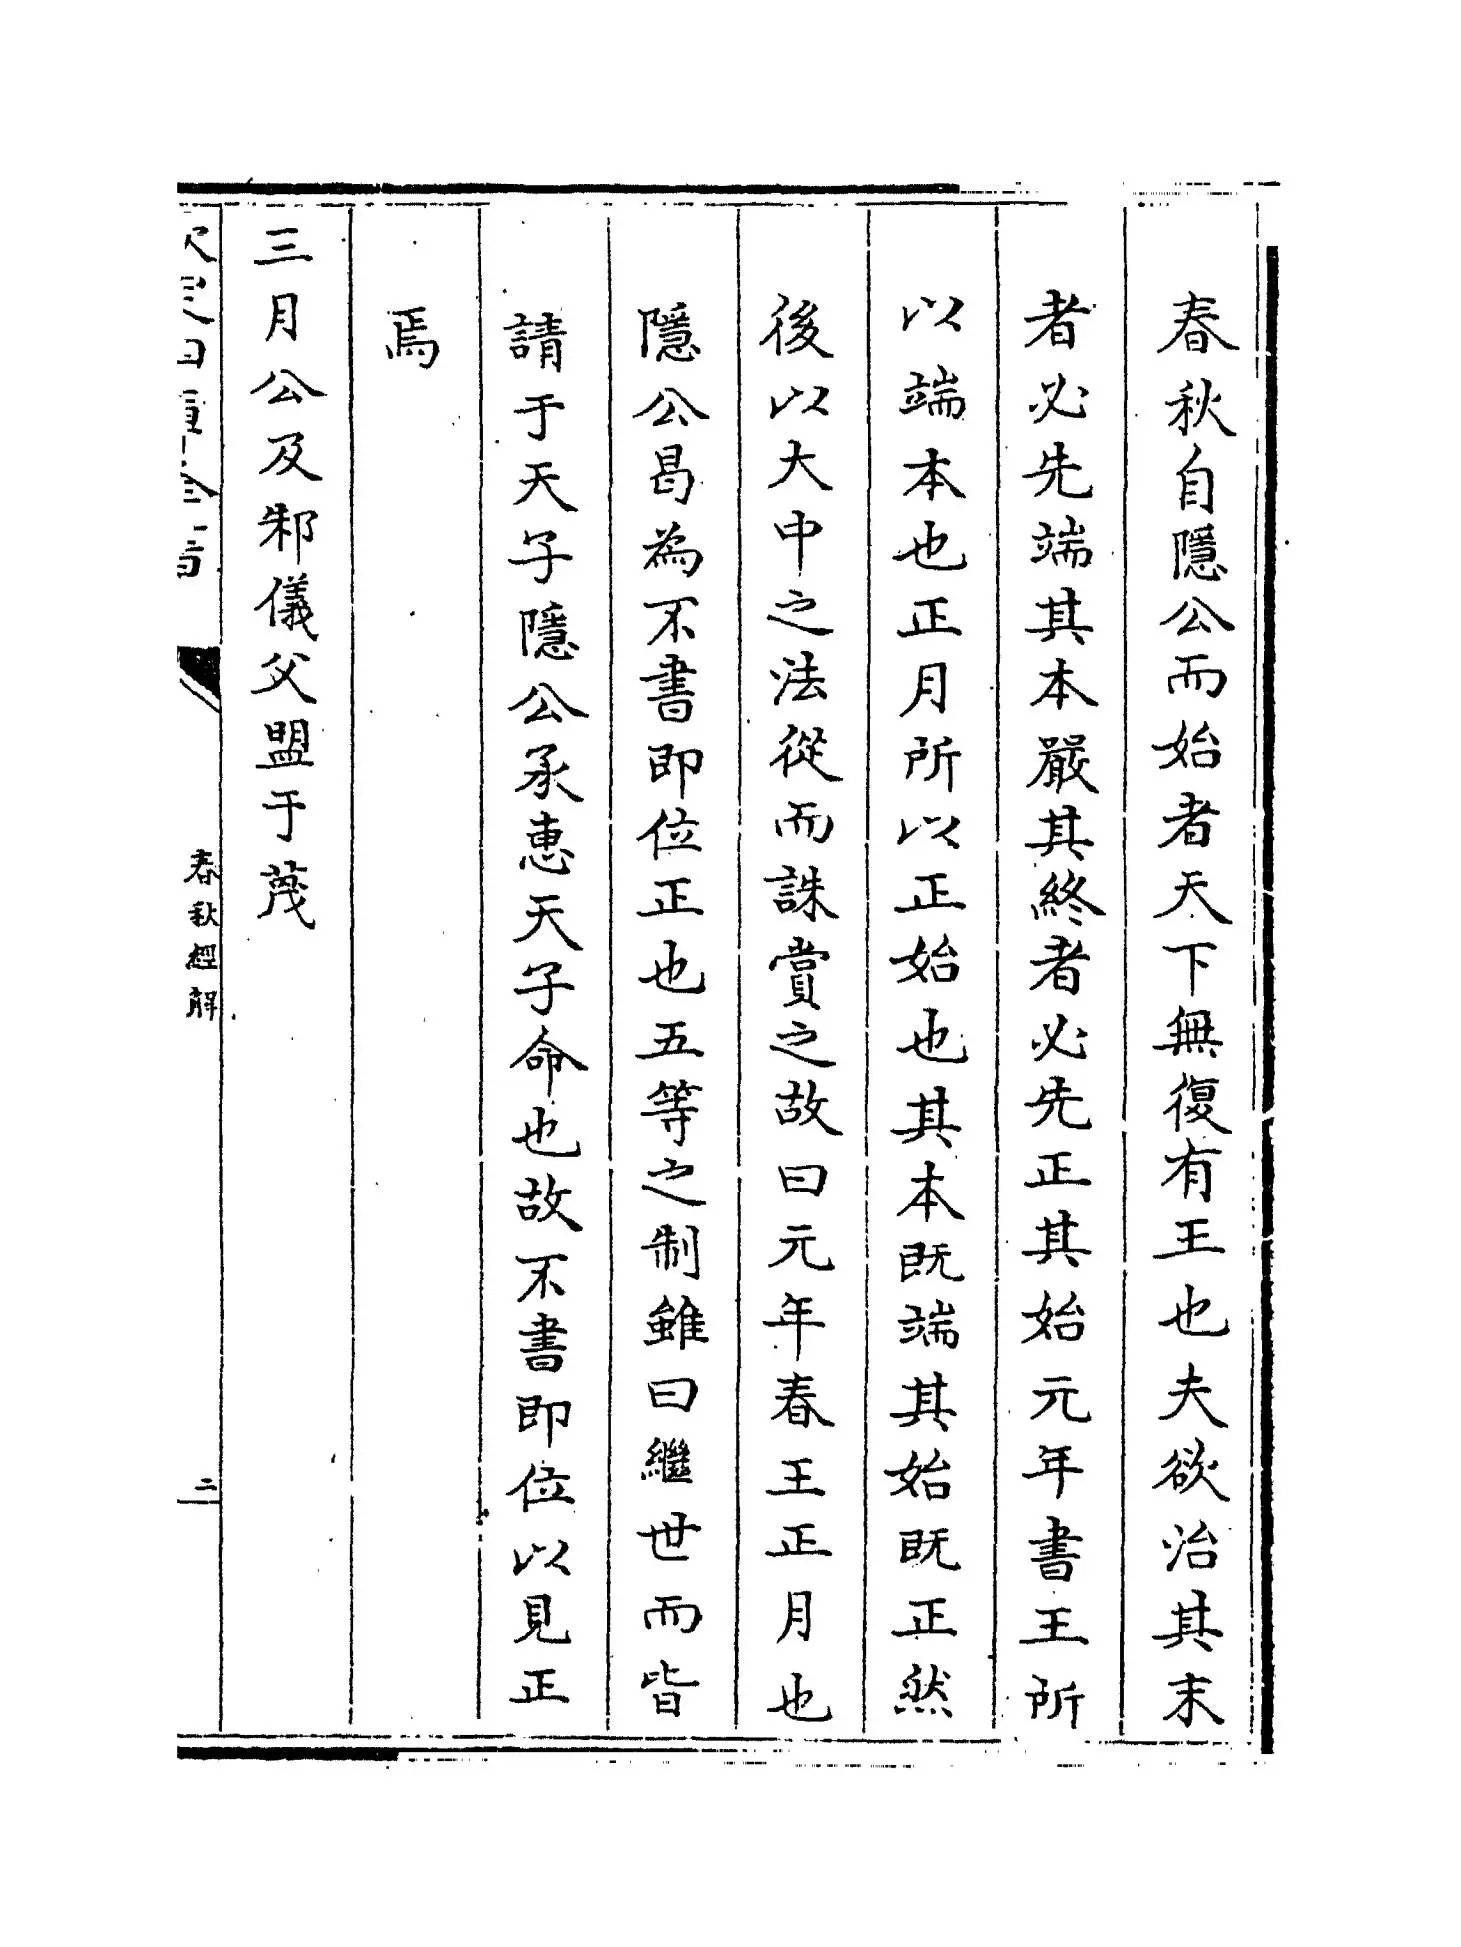 春秋自隱公而始者天下無復有王也夫欲治其末
者必先端其本嚴其終者必先正其始元年書王所
以端本也正月所以正始也其本既端其始既正然
後以大中之法從而誅賞之故曰元年春王正月也
隱公曷為不書即位正也五等之制雖曰繼世而皆
請于天子隱公承惠天子命也故不書即位以見正
焉
三月公及邾儀父盟于蔑
欽定四庫全書
春秋經解
二